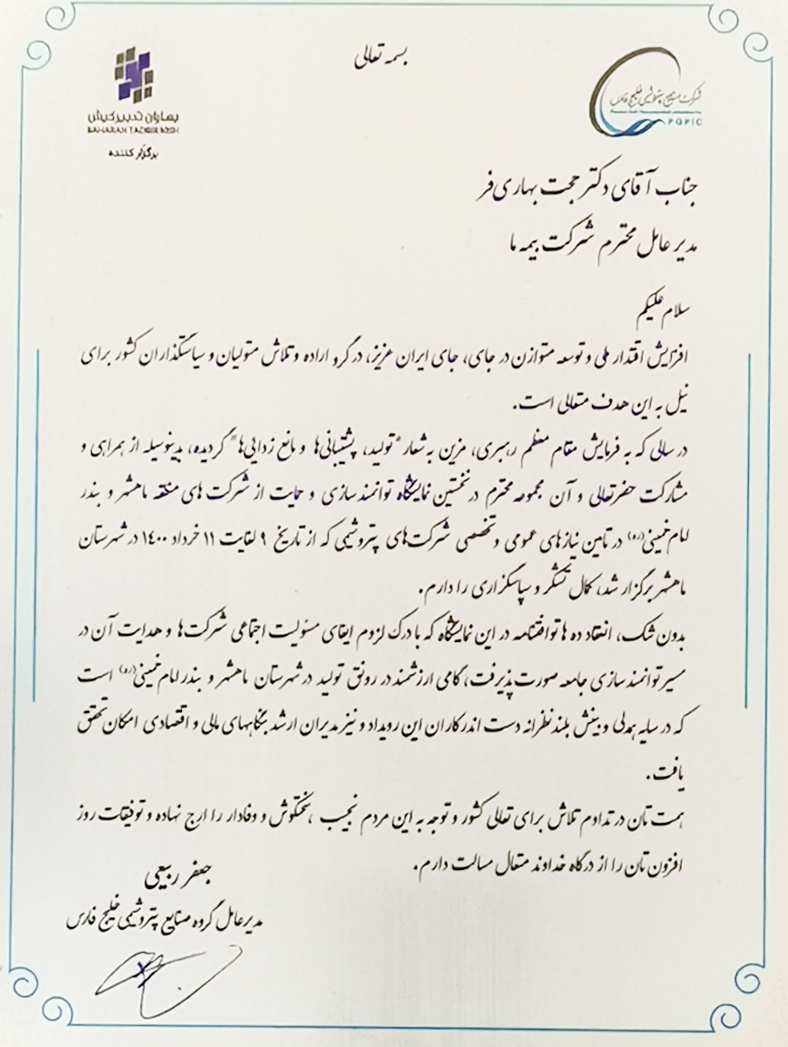 بسمه تعالی
شرکت صنایع پتروشیمی خلیج فارس
PGPIC
بهاران تدبیر کیش
BAHARAN TADBIR KISH
برگزار کننده
جناب آقای دکتر حجت بهاری‌فر
مدیر عامل محترم شرکت بیمه ما
سلام علیکم
افزایش اقتدار ملی و توسعه متوازن در جای، جای ایران عزیز، در گرو اراده و تلاش متولیان و سیاستگذاران کشور برای
نیل به این هدف متعالی است.
در سالی که به فرمایش مقام معظم رهبری، مزین به شعار "تولید، پشتیبانی‌ها و مانع زدایی‌ها" گردیده، بدینوسیله از همراهی و
مشارکت حضرتعالی و آن مجموعه محترم در نخستین نمایشگاه توانمند سازی و حمایت از شرکت های منطقه ماهشهر و بندر
امام خمینی(ره) در تامین نیازهای عمومی و تخصصی شرکت‌های پتروشیمی که از تاریخ ۹ لغایت ۱۱ خرداد ۱۴۰۰ در شهرستان
ماهشهر برگزار شد، کمال تشکر و سپاسگزاری را دارم.
بدون شک، انعقاد ده ها توافقنامه در این نمایشگاه که با درک لزوم ایفای مسئولیت اجتماعی شرکت‌ها و هدایت آن در
مسیر توانمند سازی جامعه صورت پذیرفت، گامی ارزشمند در رونق تولید در شهرستان ماهشهر و بندر امام خمینی(ره) است
که در سایه همدلی و بینش بلند نظرانه دست اندرکاران این رویداد و نیز مدیران ارشد بنگاههای مالی و اقتصادی امکان تحقق
یافت.
همت تان در تداوم تلاش برای تعالی کشور و توجه به این مردم نجیب، سختکوش و وفادار را ارج نهاده و توفیقات روز
افزون تان را از درگاه خداوند متعال مسالت دارم.
جعفر ربیعی
مدیرعامل گروه صنایع پتروشیمی خلیج فارس